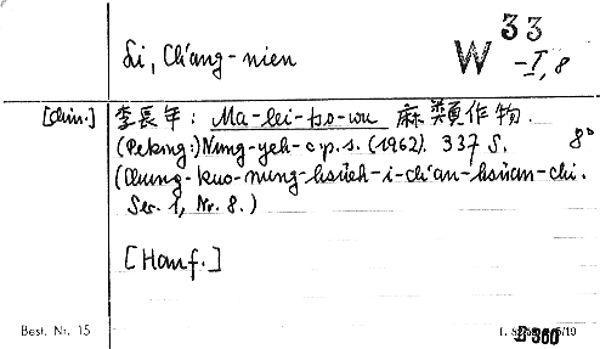 Li, Ch'ang-nien
W 33
-I, 8
[chin.] 李長年: Ma-lei-tso-wu 麻類作物.
(Peking:) Nung-yeh-c.p.s. (1962). 337 S. 8°
(Chung-kuo-nung-hsüeh-i-ch'an-hsüan-chi.
Ser. 1, Nr. 8.)
[Hanf.]
Best. Nr. 15